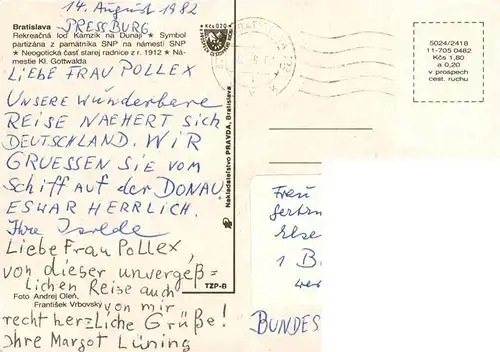 14. August 1982
PRESSBURG
Bratislava
Rekreačná loď Kamzík na Dunaji ★ Symbol
partizána z pamätníka SNP na námestí SNP ★
★ Neogotická časť starej radnice z r. 1912 ★ Ná-
mestie Kl. Gottwalda
LIEBE FRAU POLLEX
UNSERE WUNDERBARE
REISE NAEHERT SICH
DEUTSCHLAND. WIR
GRUESSEN SIE VOM
Schiff auf der DONAU
ES WAR HERRLICH.
Ihre Isolde
Liebe Frau Pollex,
von dieser unvergeß=
lichen Reise auch
von mir
recht herzliche Grüße!
Ihre Margot Lüning
Foto Andrej Oleň,
František Vrbovský
Nakladateľstvo PRAVDA, Bratislava
TZP-B
Kčs 0.20
5024/2418
11-705 0482
Kčs 1,80
a 0,20
v prospech
cest. ruchu
Frau
Else
1 B
BUNDES